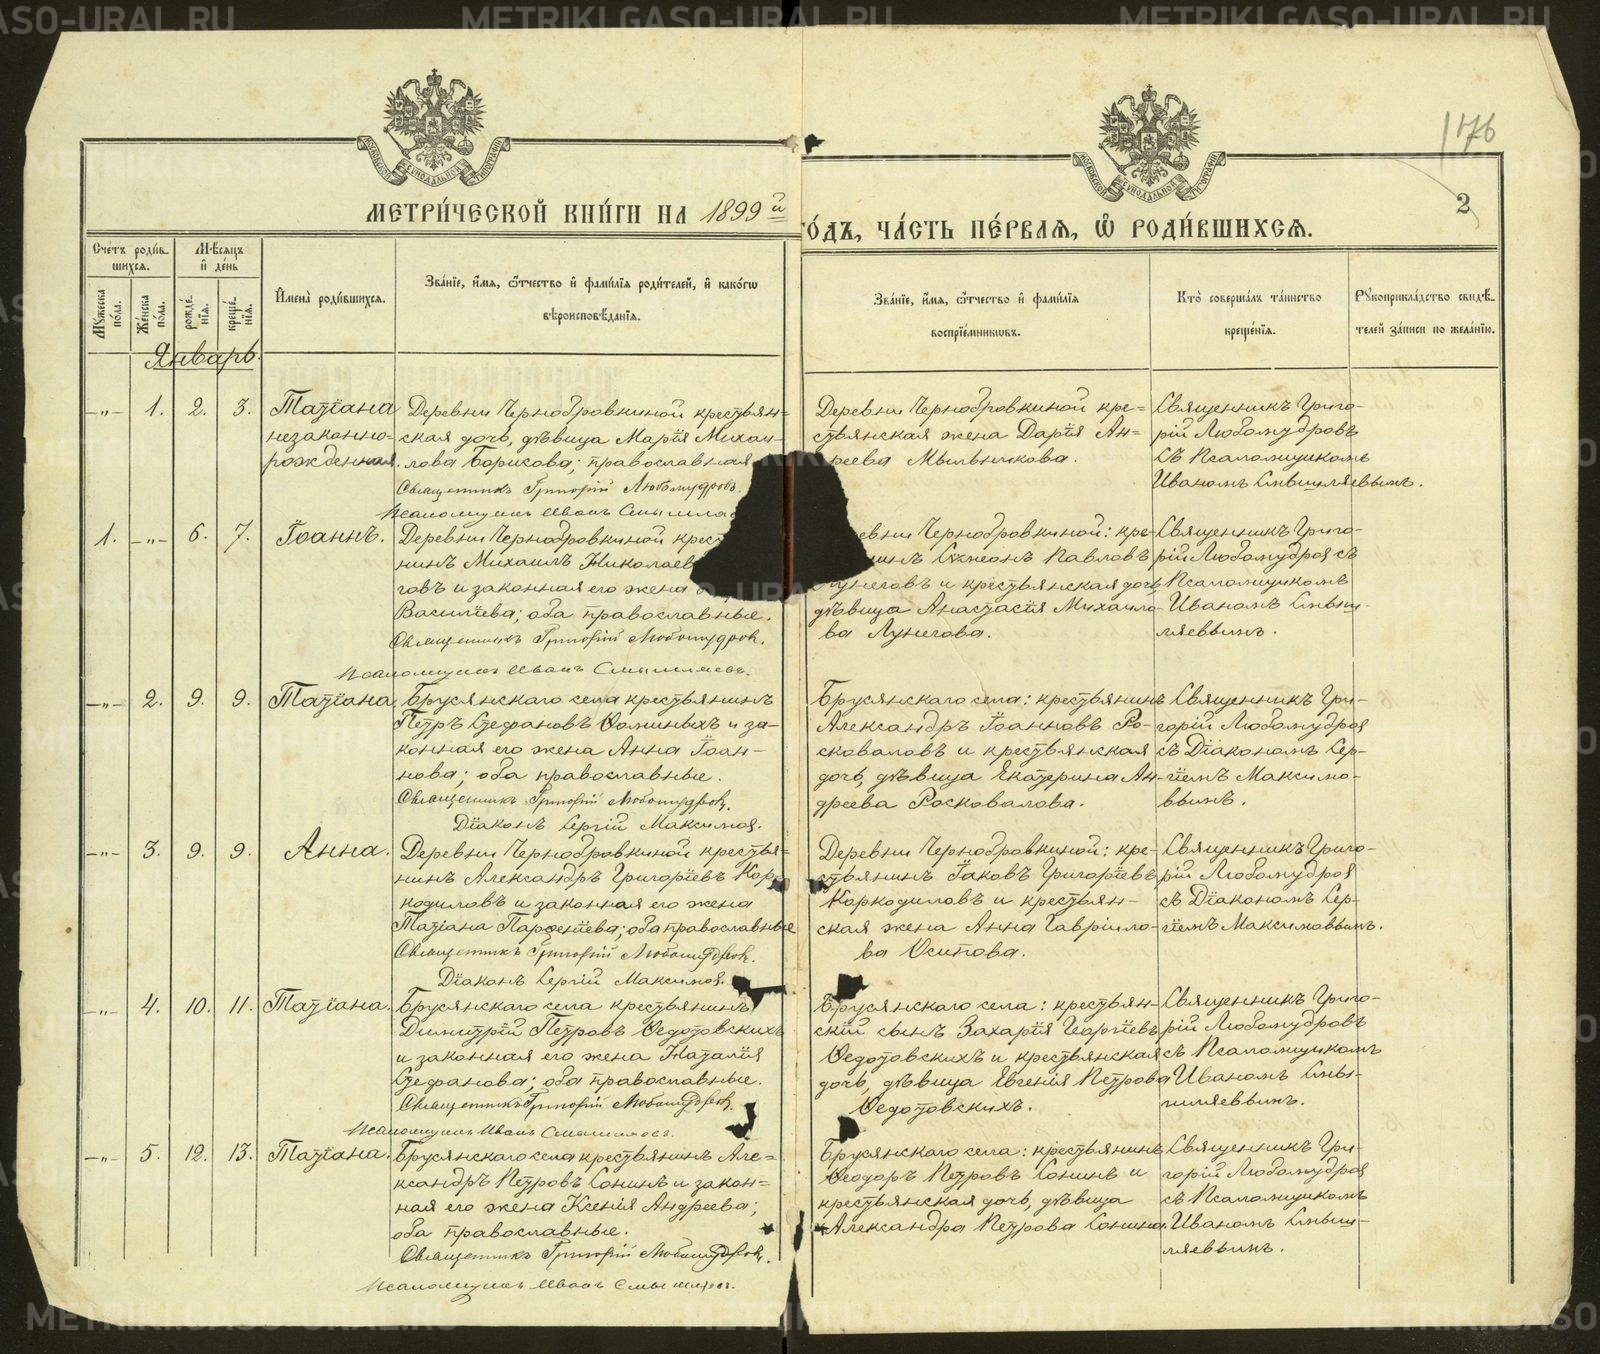 METRIKI.GASO-URAL.RU
176
2
МЕТРИ́ЧЕСКОЙ КНИ́ГИ НА 1899й
ГО́ДЪ, ЧА́СТЬ ПЕ́РВАѦ, Ѽ РОДИ́ВШИХСѦ.
МОСКОВСКОЙ СѴНОДАЛЬНОЙ ТИПОГРАФIИ
МОСКОВСКОЙ СѴНОДАЛЬНОЙ ТИПОГРАФIИ
Счетъ роди́вшихсѧ.
Мѣ́сѧцъ и де́нь
Мꙋ́жеска по́ла.
Же́нска по́ла.
рожде́нїѧ.
креще́нїѧ.
И҆мена̀ роди́вшихсѧ.
Зва́нїе, и҆́мѧ, ѻ҆́тчество и҆ фами́лїѧ роди́телей, и҆ како́гѡ
вѣроисповѣ́данїѧ.
Зва́нїе, и҆́мѧ, ѻ҆́тчество и҆ фами́лїѧ
воспрїе́мникѡвъ.
Кто̀ соверша́лъ та́инство
креще́нїѧ.
Рꙋкоприкла́дство свидѣ́телей за́писи по жела́нїю.
Январь.
-"- 1. 2. 3. Татїана
незаконно-
рожденная.
Деревни Чернобровкиной крестьян=
ская дочь, дѣвица Марїя Михаи-
лова Борисова; православная
Священникъ Григорій Любомудровъ.
Псаломщикъ Иванъ
Деревни Чернобровкиной кре=
стьянская жена Дарїя Ан-
реева Мыльникова.
Священникъ Григо-
рій Любомудровъ
съ Псаломщикомъ
Иваномъ Смышляевымъ.
1. -"- 6. 7. Їоаннъ.
Деревни Чернобровкиной крест
нинъ Михаилъ Николаев
говъ и законная его жена
Василїева; оба православные.
Священникъ Григорій Любомудровъ.
Псаломщикъ Иванъ Смышляевъ.
евни Чернобровкиной: кре-
инъ Сѵмеонъ Павловъ
Лунеговъ и крестьянская дочь,
дѣвица Анастасїя Михаило-
ва Лунегова.
Священникъ Григо-
рій Любомудровъ съ
Псаломщикомъ
Иваномъ Смыш-
ляевымъ.
-"- 2. 9. 9. Татїана.
Брусянскаго села крестьянинъ
Петръ Стефановъ Ѳоминыхъ и за-
конная его жена Анна Їоан-
нова; оба православные.
Священникъ Григорій Любомудровъ.
Дїаконъ Сергій Максимовъ.
Брусянскаго села: крестьянинъ
Александръ Їоанновъ Ро-
сковаловъ и крестьянская
дочь, дѣвица Екатерина Ан-
дреева Росковалова.
Священникъ Гри-
горій Любомудровъ
съ Дїакономъ Сер-
гїемъ Максимо-
вымъ.
-"- 3. 9. 9. Анна.
Деревни Чернобровкиной крестья-
нинъ Александръ Григорїевъ Кор-
кодиловъ и законная его жена
Татїана Парѳентїева; оба православные
Священникъ Григорій Любомудровъ.
Дїаконъ Сергій Максимовъ.
Деревни Чернобровкиной: кре-
стьянинъ Їаковъ Григорїевъ
Коркодиловъ и крестьян-
ская жена Анна Гаврiило-
ва Осипова.
Священникъ Григо-
рій Любомудровъ
съ Дїакономъ Сер-
гїемъ Максимовымъ.
-"- 4. 10. 11. Татїана.
Брусянскаго села крестьянинъ
Димитрїй Петровъ Ѳедотовскихъ
и законная его жена Наталїя
Стефанова; оба православные.
Священникъ Григорій Любомудровъ.
Псаломщикъ Иванъ Смышляевъ.
Брусянскаго села: крестьян-
скїй сынъ Захарїя Георгїевъ
Ѳедотовскихъ и крестьянская
дочь, дѣвица Евгенїя Петрова
Ѳедотовскихъ.
Священникъ Григо-
рій Любомудровъ
съ Псаломщикомъ
Иваномъ Смы-
шляевымъ.
-"- 5. 12. 13. Татїана.
Брусянскаго села крестьянинъ Але=
ксандръ Петровъ Сонинъ и закон=
ная его жена Ксенїя Андреева;
оба православные.
Священникъ Григорій Любомудровъ.
Псаломщикъ Иванъ Смышляевъ.
Брусянскаго села: крестьянинъ
Ѳеодоръ Петровъ Сонинъ и
крестьянская дочь, дѣвица
Александра Петрова Сонина.
Священникъ Гри-
горій Любомудровъ
съ Псаломщикомъ
Иваномъ Смыш-
ляевымъ.